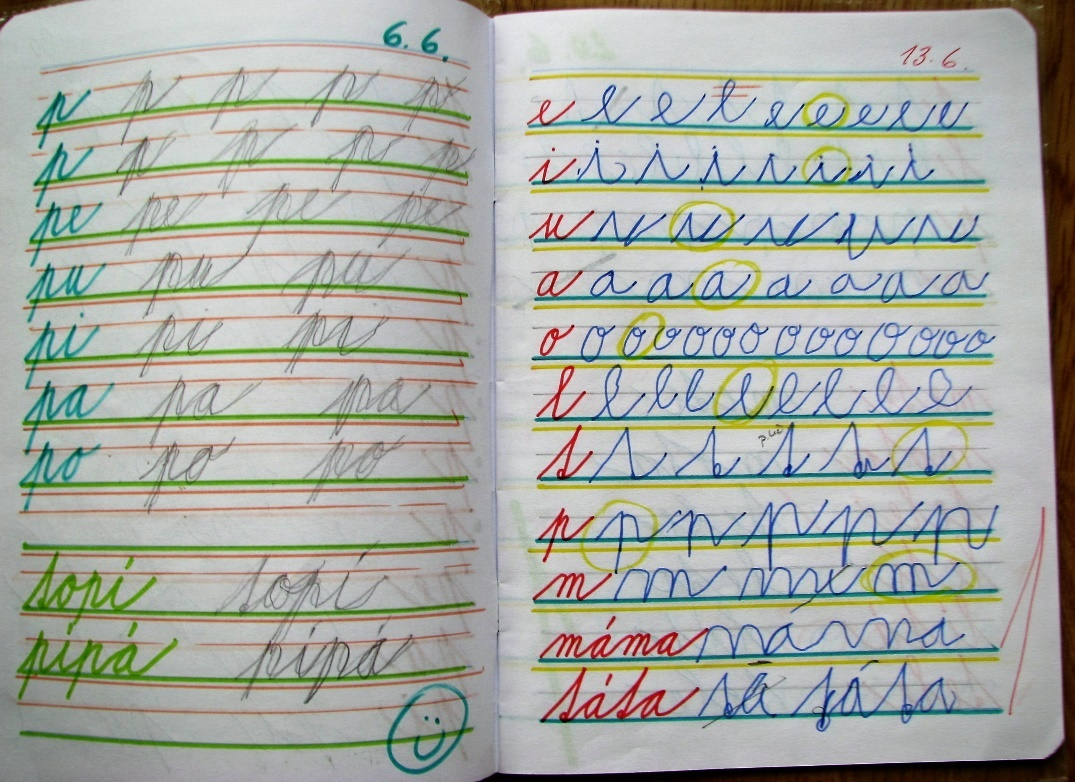 6.6.
p p p p p
p p p p p
pe pe pe pe
pu pu pu
pi pi pi
pa pa pa
po po po
sopí sopí
pípá pípá
13.6.
e e e e e e e e e
i i i i i i i i
u u u u u u
a a a a a a a a
o o o o o o o o o o o o o o
l l l l l l l l l
s s s s s s
p p p p p p
m m m m
máma má ma
sása sá sása